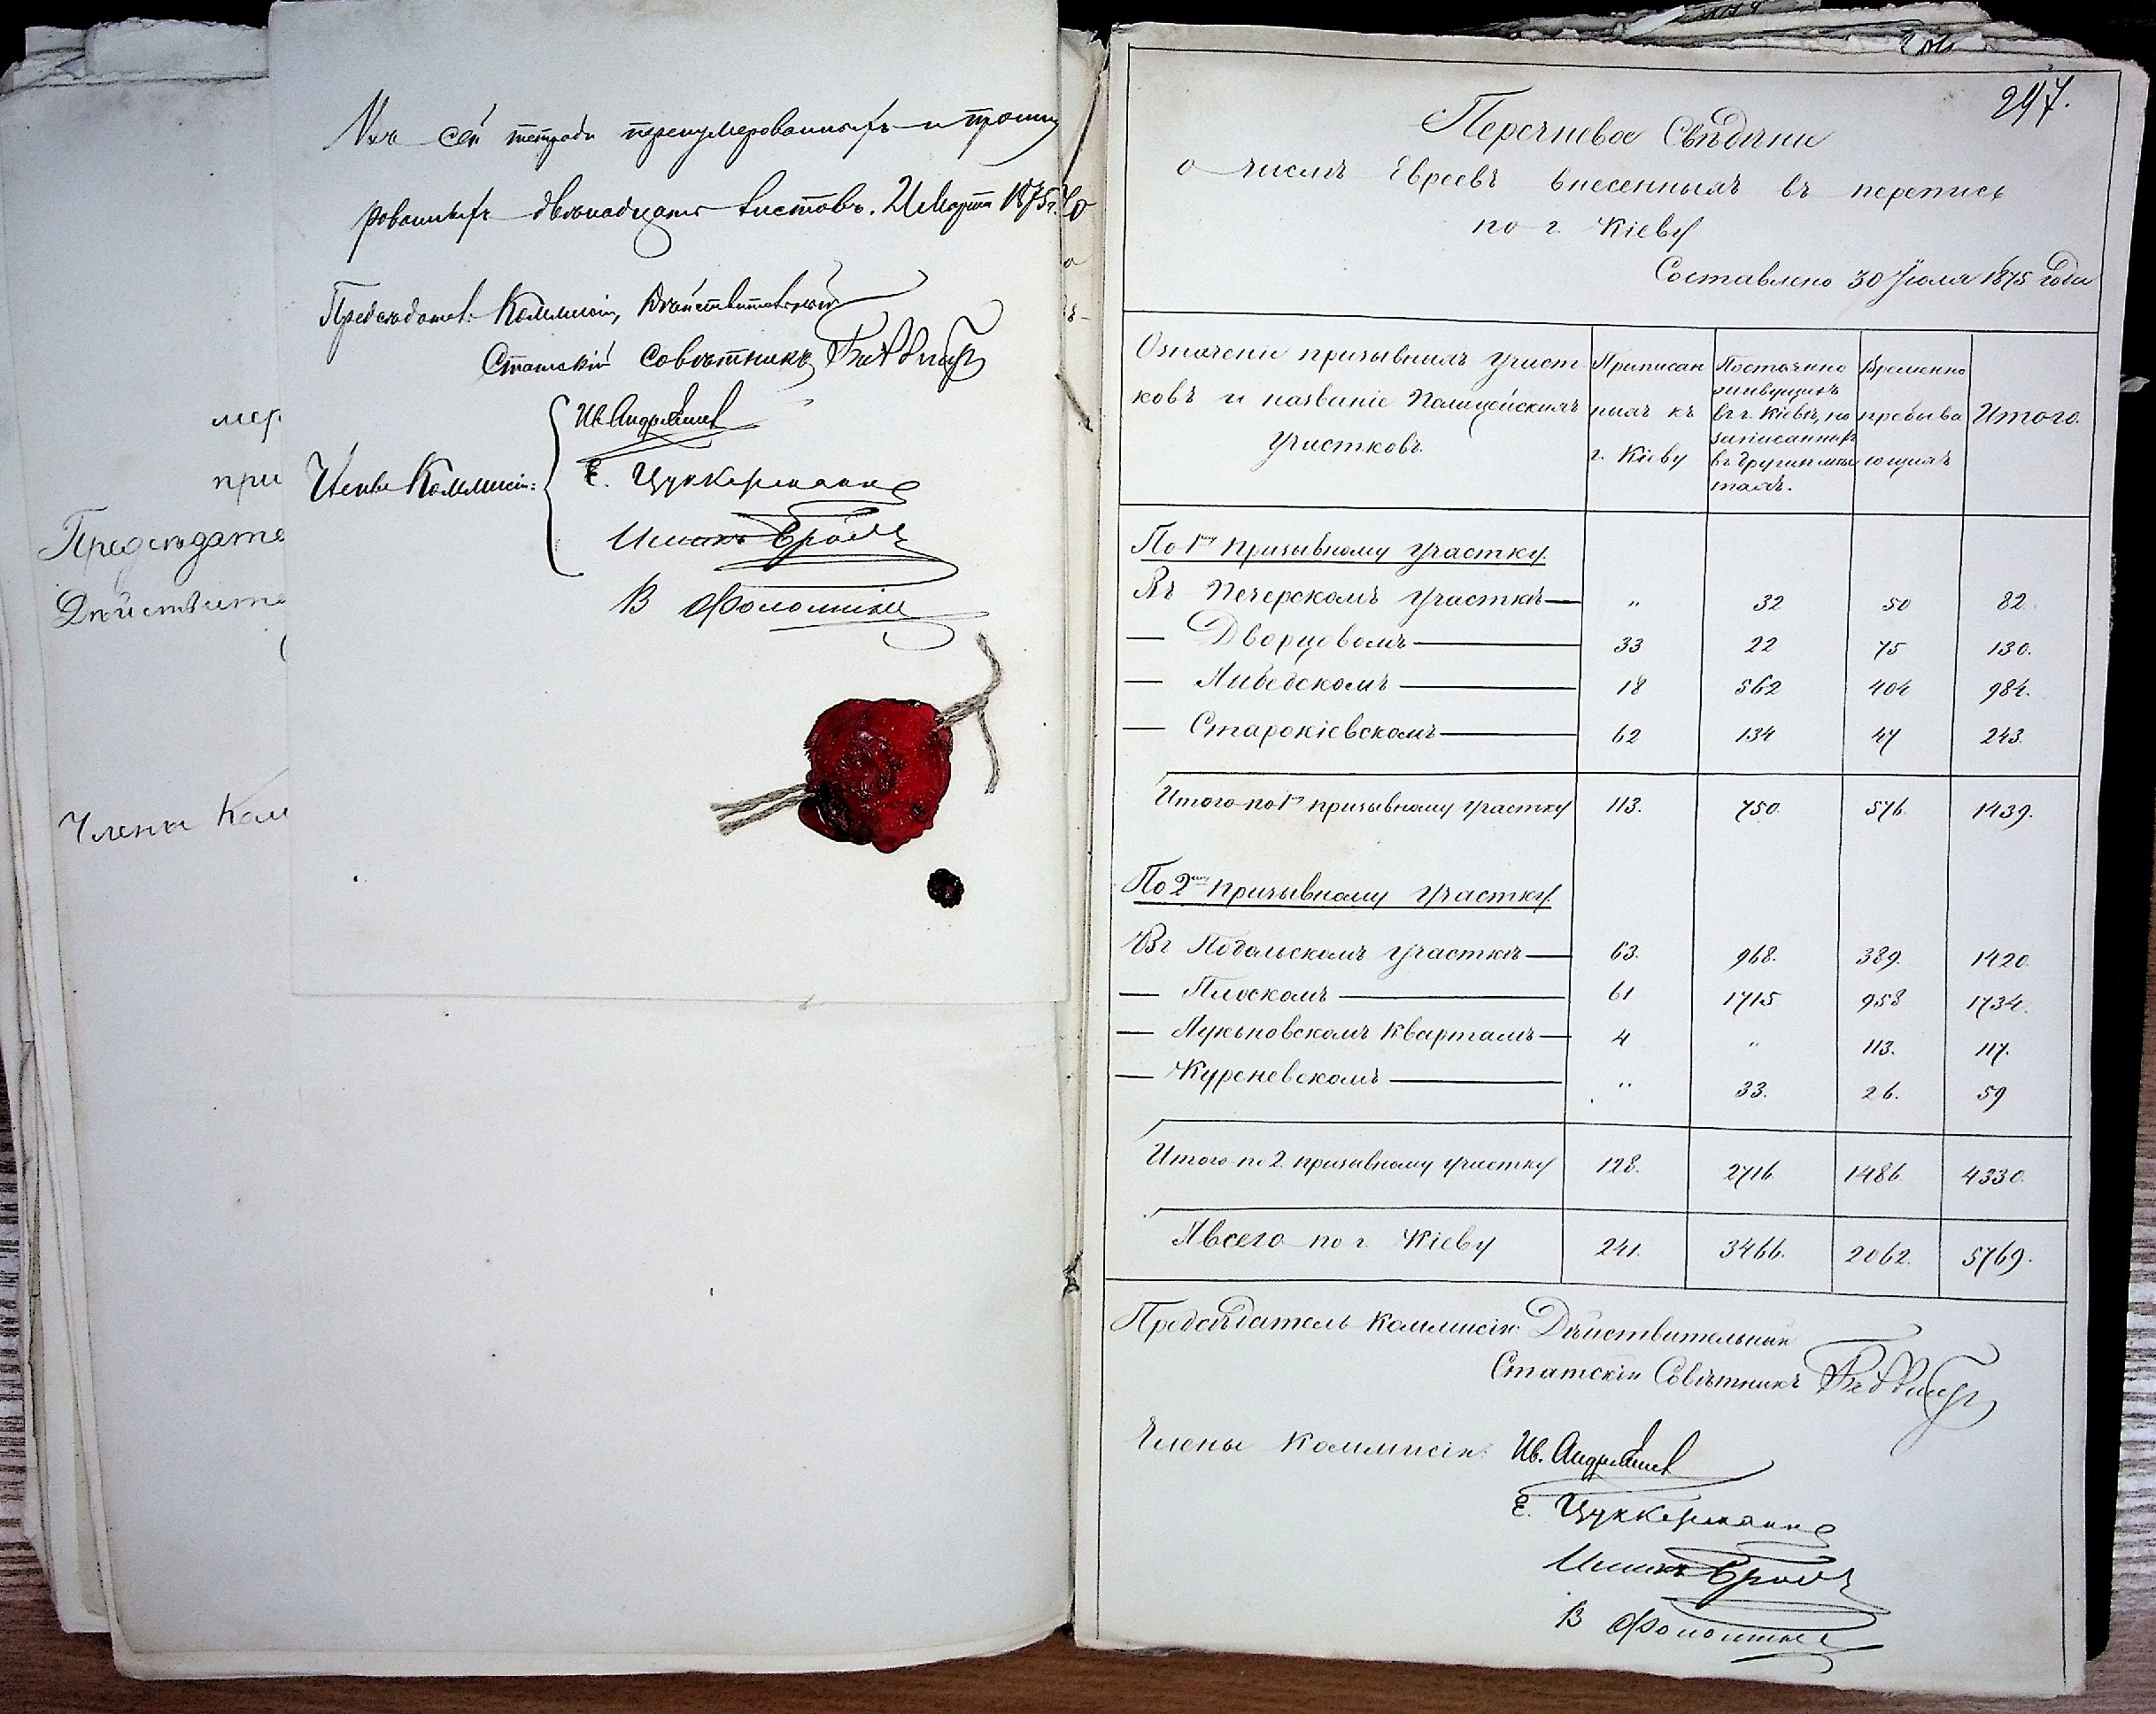 мер
при
Предсѣдате
Дѣйствите
Члены Ком
Въ сей тетради перенумерованныхъ и прошну
рованныхъ двѣнадцать листовъ. Марта 1875 г.
Предсѣдател: Коммисіи, Дѣйствительный
Статскій Совѣтникъ
Члены Коммисіи:
Ив. Андр
Е. Цуккерманъ
Бродъ
В
297.
Перечневое Свѣдѣніе
о числѣ Евреевъ внесенныхъ въ перепись
по г. Кіеву
Составлено 30 Іюля 1875 года
Означеніе призывныхъ участ
ковъ и названіе Полицейскихъ
участковъ.
Приписан
ныхъ къ
г. Кіеву
Постоянно
живущихъ
въ г. Кіевѣ, но
записанныхъ
въ другихъ мѣс
тахъ.
Временно
пребыва
ющихъ
Итого.
По 1му призывному участку.
Въ Печерскомъ участкѣ — " 32 50 82.
— Дворцовомъ — 33 22 75 130.
— Лыбедскомъ — 18 562 404 984.
— Старокіевскомъ — 62 134 47 243.
Итого по 1му призывному участку 113. 750. 576. 1439.
По 2му призывному участку.
Въ Подольскомъ участкѣ — 63. 968. 389. 1420.
— Плоскомъ — 61 1715 958 1734.
— Лукьновскомъ кварталѣ — 4 " 113. 117.
— Куреневскомъ — " 33. 26. 59
Итого по 2. призывному участку 128. 2716. 1486. 4330.
А всего по г. Кіеву 241. 3466. 2062. 5769.
Предсѣдатель Коммисіи: Дѣйствительный
Статскій Совѣтникъ
Члены Коммисіи: Ив. Андр
Е. Цуккерманъ
Бродъ
В